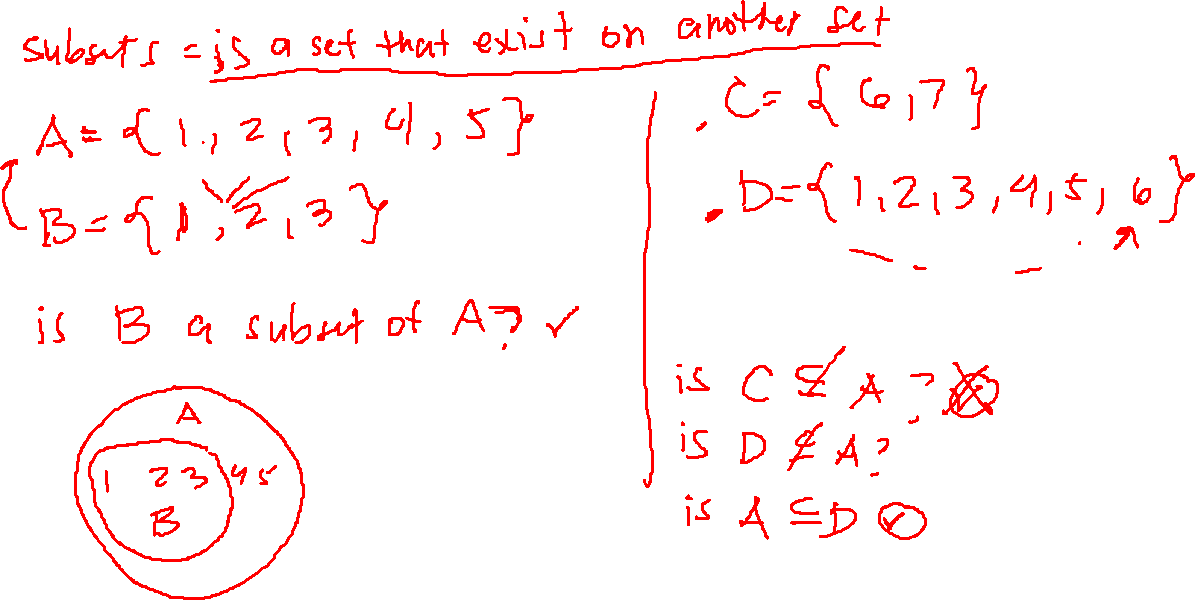 subsets = is a set that exist on another set
A = {1, 2, 3, 4, 5}
B = {1, 2, 3}
is B a subset of A? ✓
A
1 2 3 4 5
B
C = {6, 7}
D = {1, 2, 3, 4, 5, 6}
is C ⊈ A ?
is D ⊈ A?
is A ⊆ D ✓